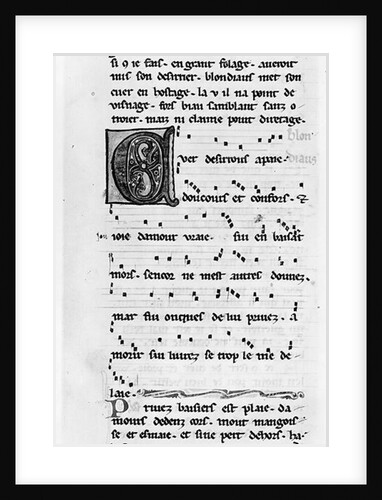 si q̄ ie fais. en grant folage. aueroit
mis son desirrier. blondiaus met son
cuer en hostage. la v il na point de
visnage. fors biau samblant sanz o
troier. maiz ni claime point diretage.
blon
diaus
Cuer desirrous apaie.
doucours et confors. &
ioie damour vraie. sui en baisāt
mors. sencor ne mest autres donez.
mar fui onques de lui priuez. a
morir sui liurez se trop le me de
laie.
Priuez baisiers est plaie. da
mours dedenz cors. mout mangois
se et esmaie. et sine pert dehors. ha.